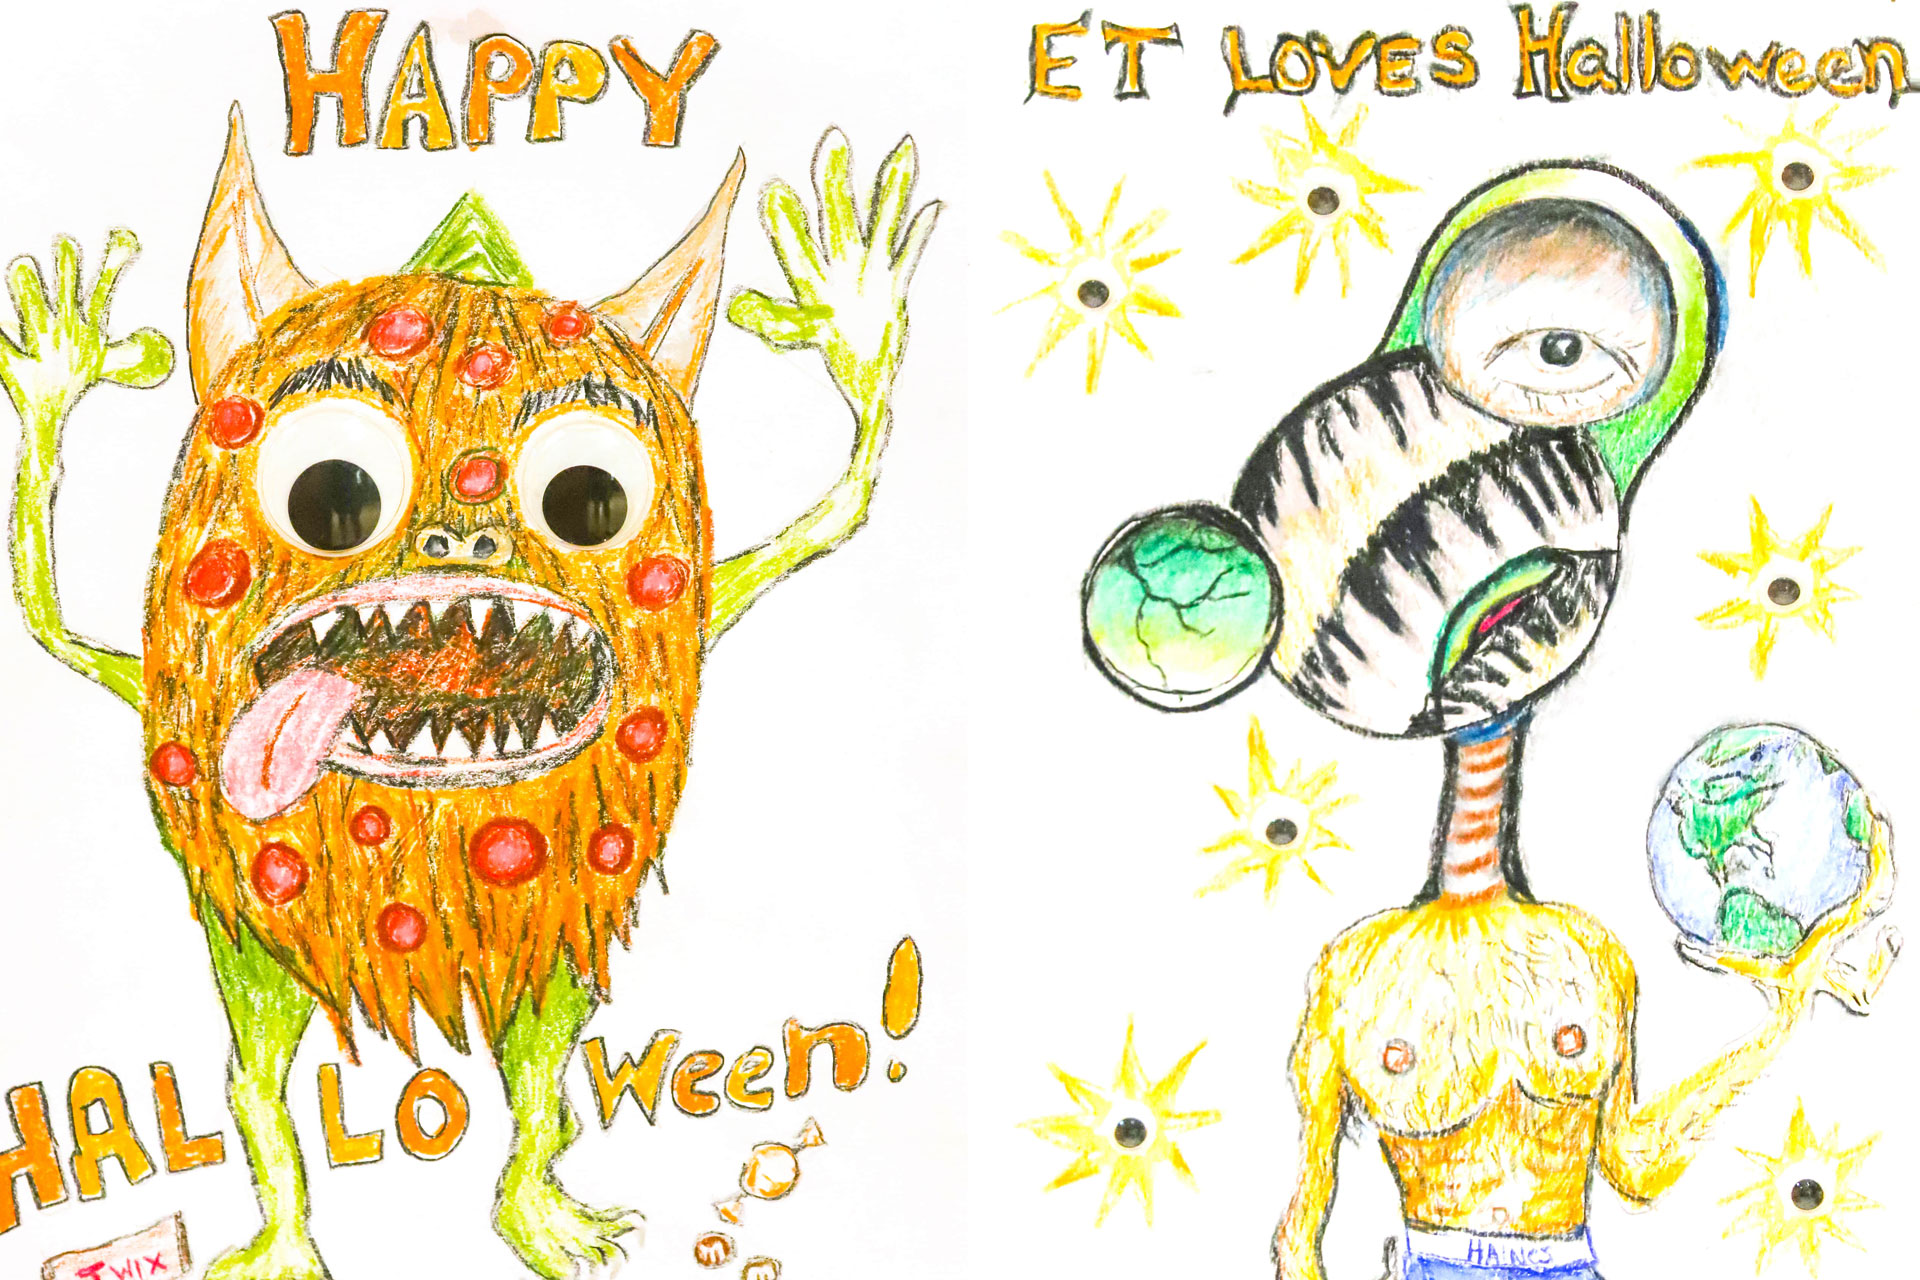 HAPPY
HALLOween!
TWIX
m
m
ET LOVES Halloween
HAINES